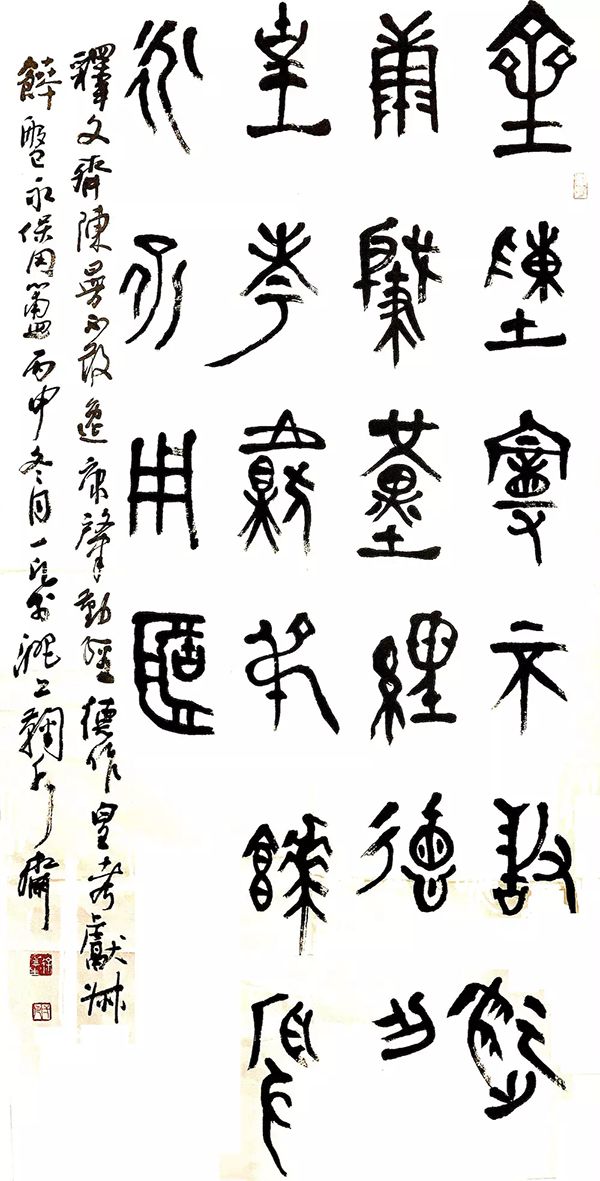 齊陳曼不敢逸
康肇勤經德作
皇考獻叔餴盤
永保用簠
釋文齊陳曼不敢逸康肇勤經德作皇考獻叔
餴盤永保用簠丙申冬月一書滬上齋